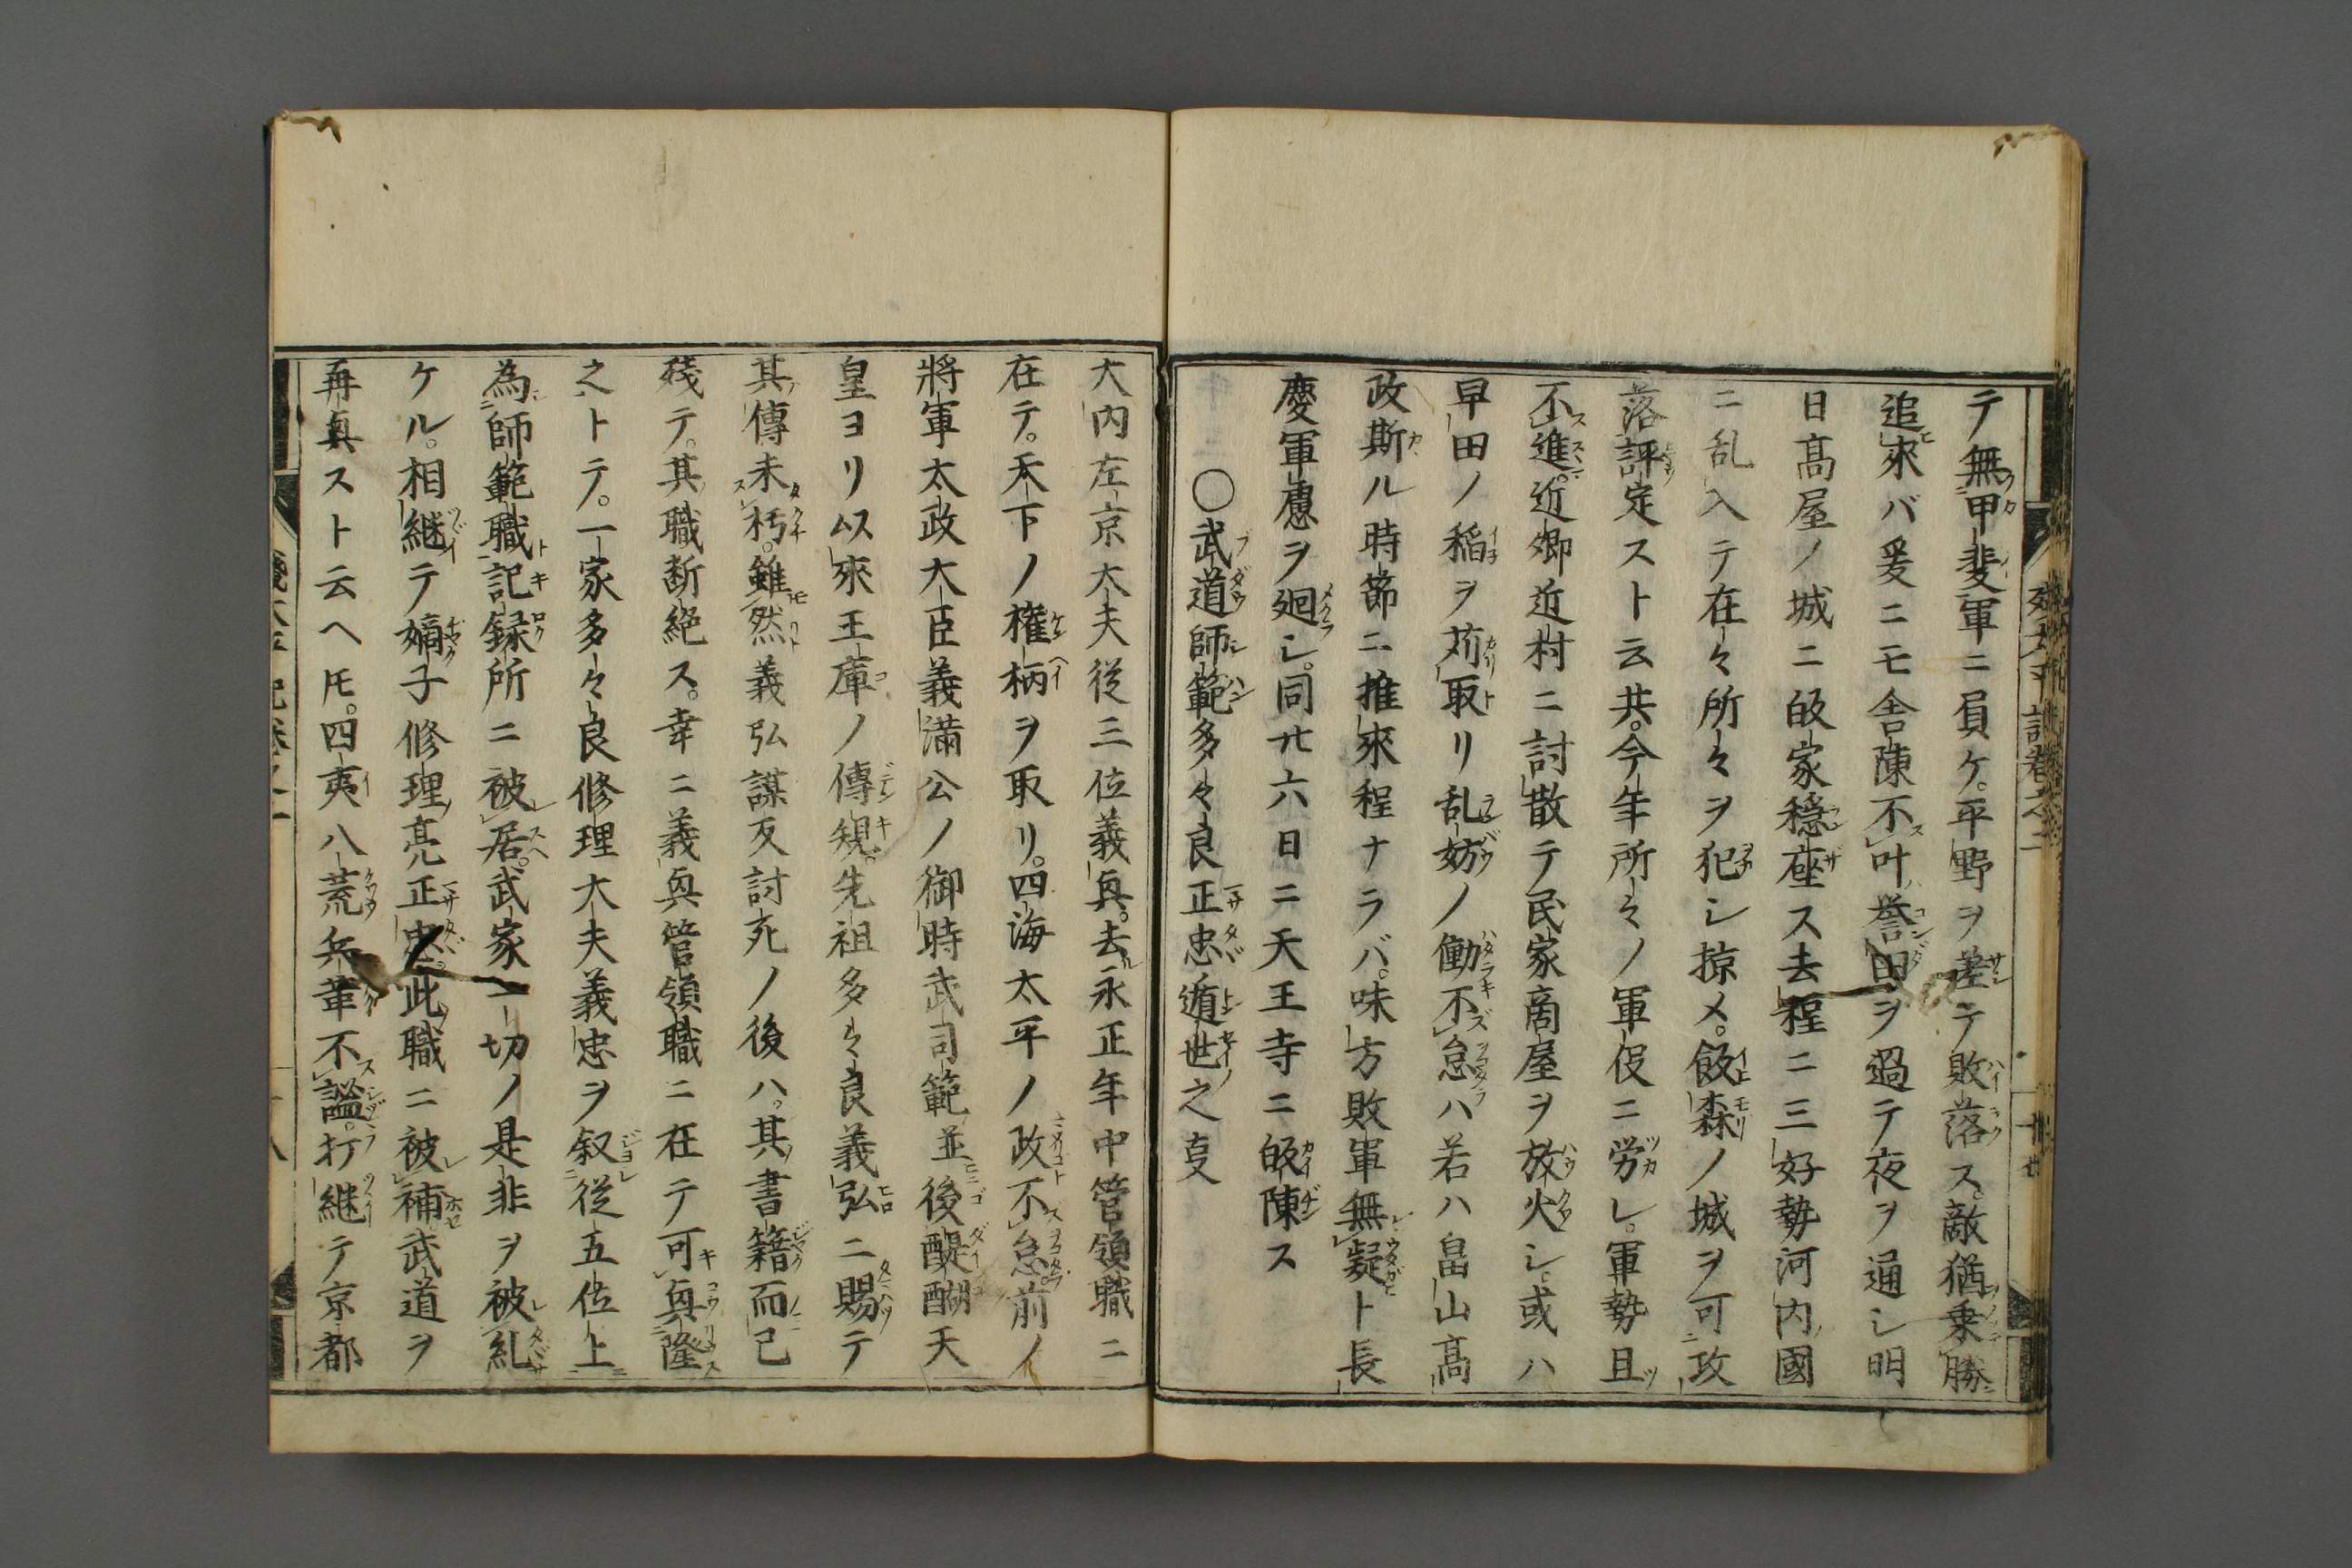 テ無甲斐軍ニ負ケ。平野ヲ差テ敗落ス。敵猶乗勝
追來バ爰ニモ舎陳不叶誉田ヲ過テ夜ヲ通シ明
日髙屋ノ城ニ皈家穏座ス去程ニ三好勢河内國
ニ乱入テ在々所々ヲ犯シ掠メ。飯森ノ城ヲ可攻
落評定スト云共。今年所々ノ軍役ニ労レ。軍勢且
不進。近郷近村ニ討散テ民家商屋ヲ放火シ。或ハ
早田ノ稲ヲ苅取リ乱妨ノ働不怠ハ若ハ畠山髙
政斯ル時節ニ推來程ナラバ。味方敗軍無疑ト長
慶軍慮ヲ廻シ。同廿六日ニ天王寺ニ皈陳ス
〇武道師範多々良正忠遁世之㕝
大内左京大夫従三位義興。去永正年中管領職ニ
在テ。天下ノ権柄ヲ取リ。四海太平ノ政不怠。前ノ
將軍太政大臣義満公ノ御時武司範並後醍醐天
皇ヨリ以來王庫ノ傳規。先祖多々良義弘ニ賜テ
其傳未朽。雖然義弘謀反討死ノ後ハ。其書籍而已
残テ。其職断絶ス。幸ニ義興管領職ニ在テ可興隆
之トテ。一家多々良修理大夫義忠ヲ叙従五位上
為師範職記録所ニ被居。武家一切ノ是非ヲ被糺
ケル。相継テ嫡子修理亮正忠。此職ニ被補武道ヲ
再興スト云ヘ𪜈。四夷八荒兵革不謐。打継テ京都